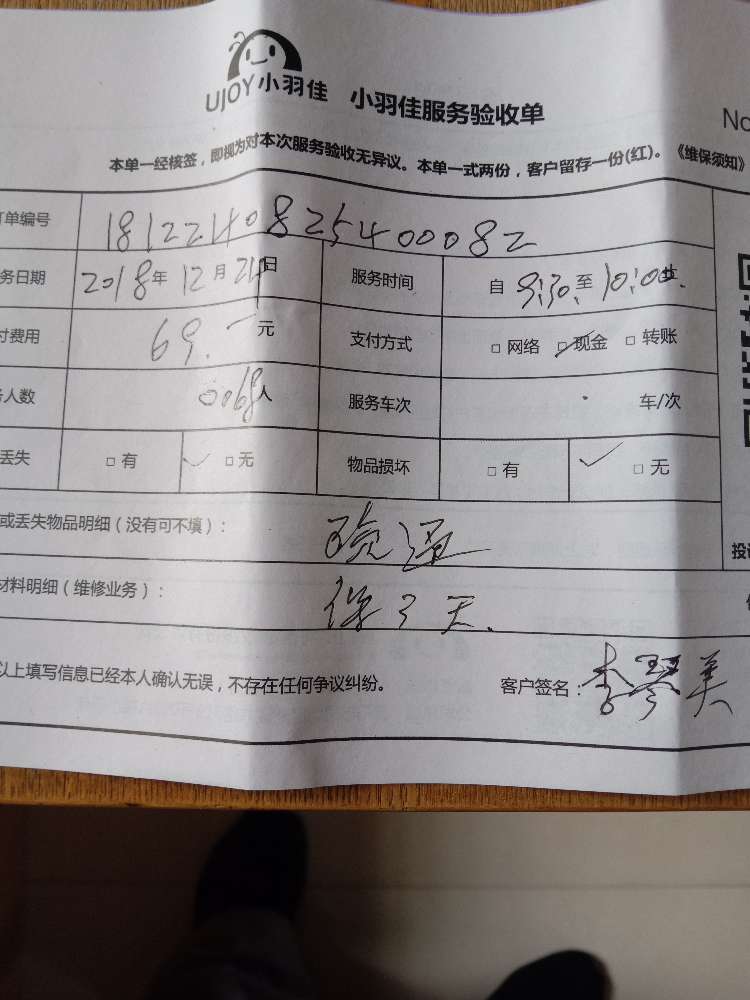 UJOY小羽佳 小羽佳服务验收单
No
本单一经核签，即视为对本次服务验收无异议。本单一式两份，客户留存一份(红)。《维保须知》
订单编号 18122140825400082
务日期 2018年12月24日 服务时间 自 9:30 至 10:00止
付费用 69.一元 支付方式 □网络 □现金 □转账
人数 0068人 服务车次 车/次
丢失 □有 □无 物品损坏 □有 □无
或丢失物品明细（没有可不填）：
投诉
材料明细（维修业务）： 保3天.
以上填写信息已经本人确认无误，不存在任何争议纠纷。 客户签名：李琴美